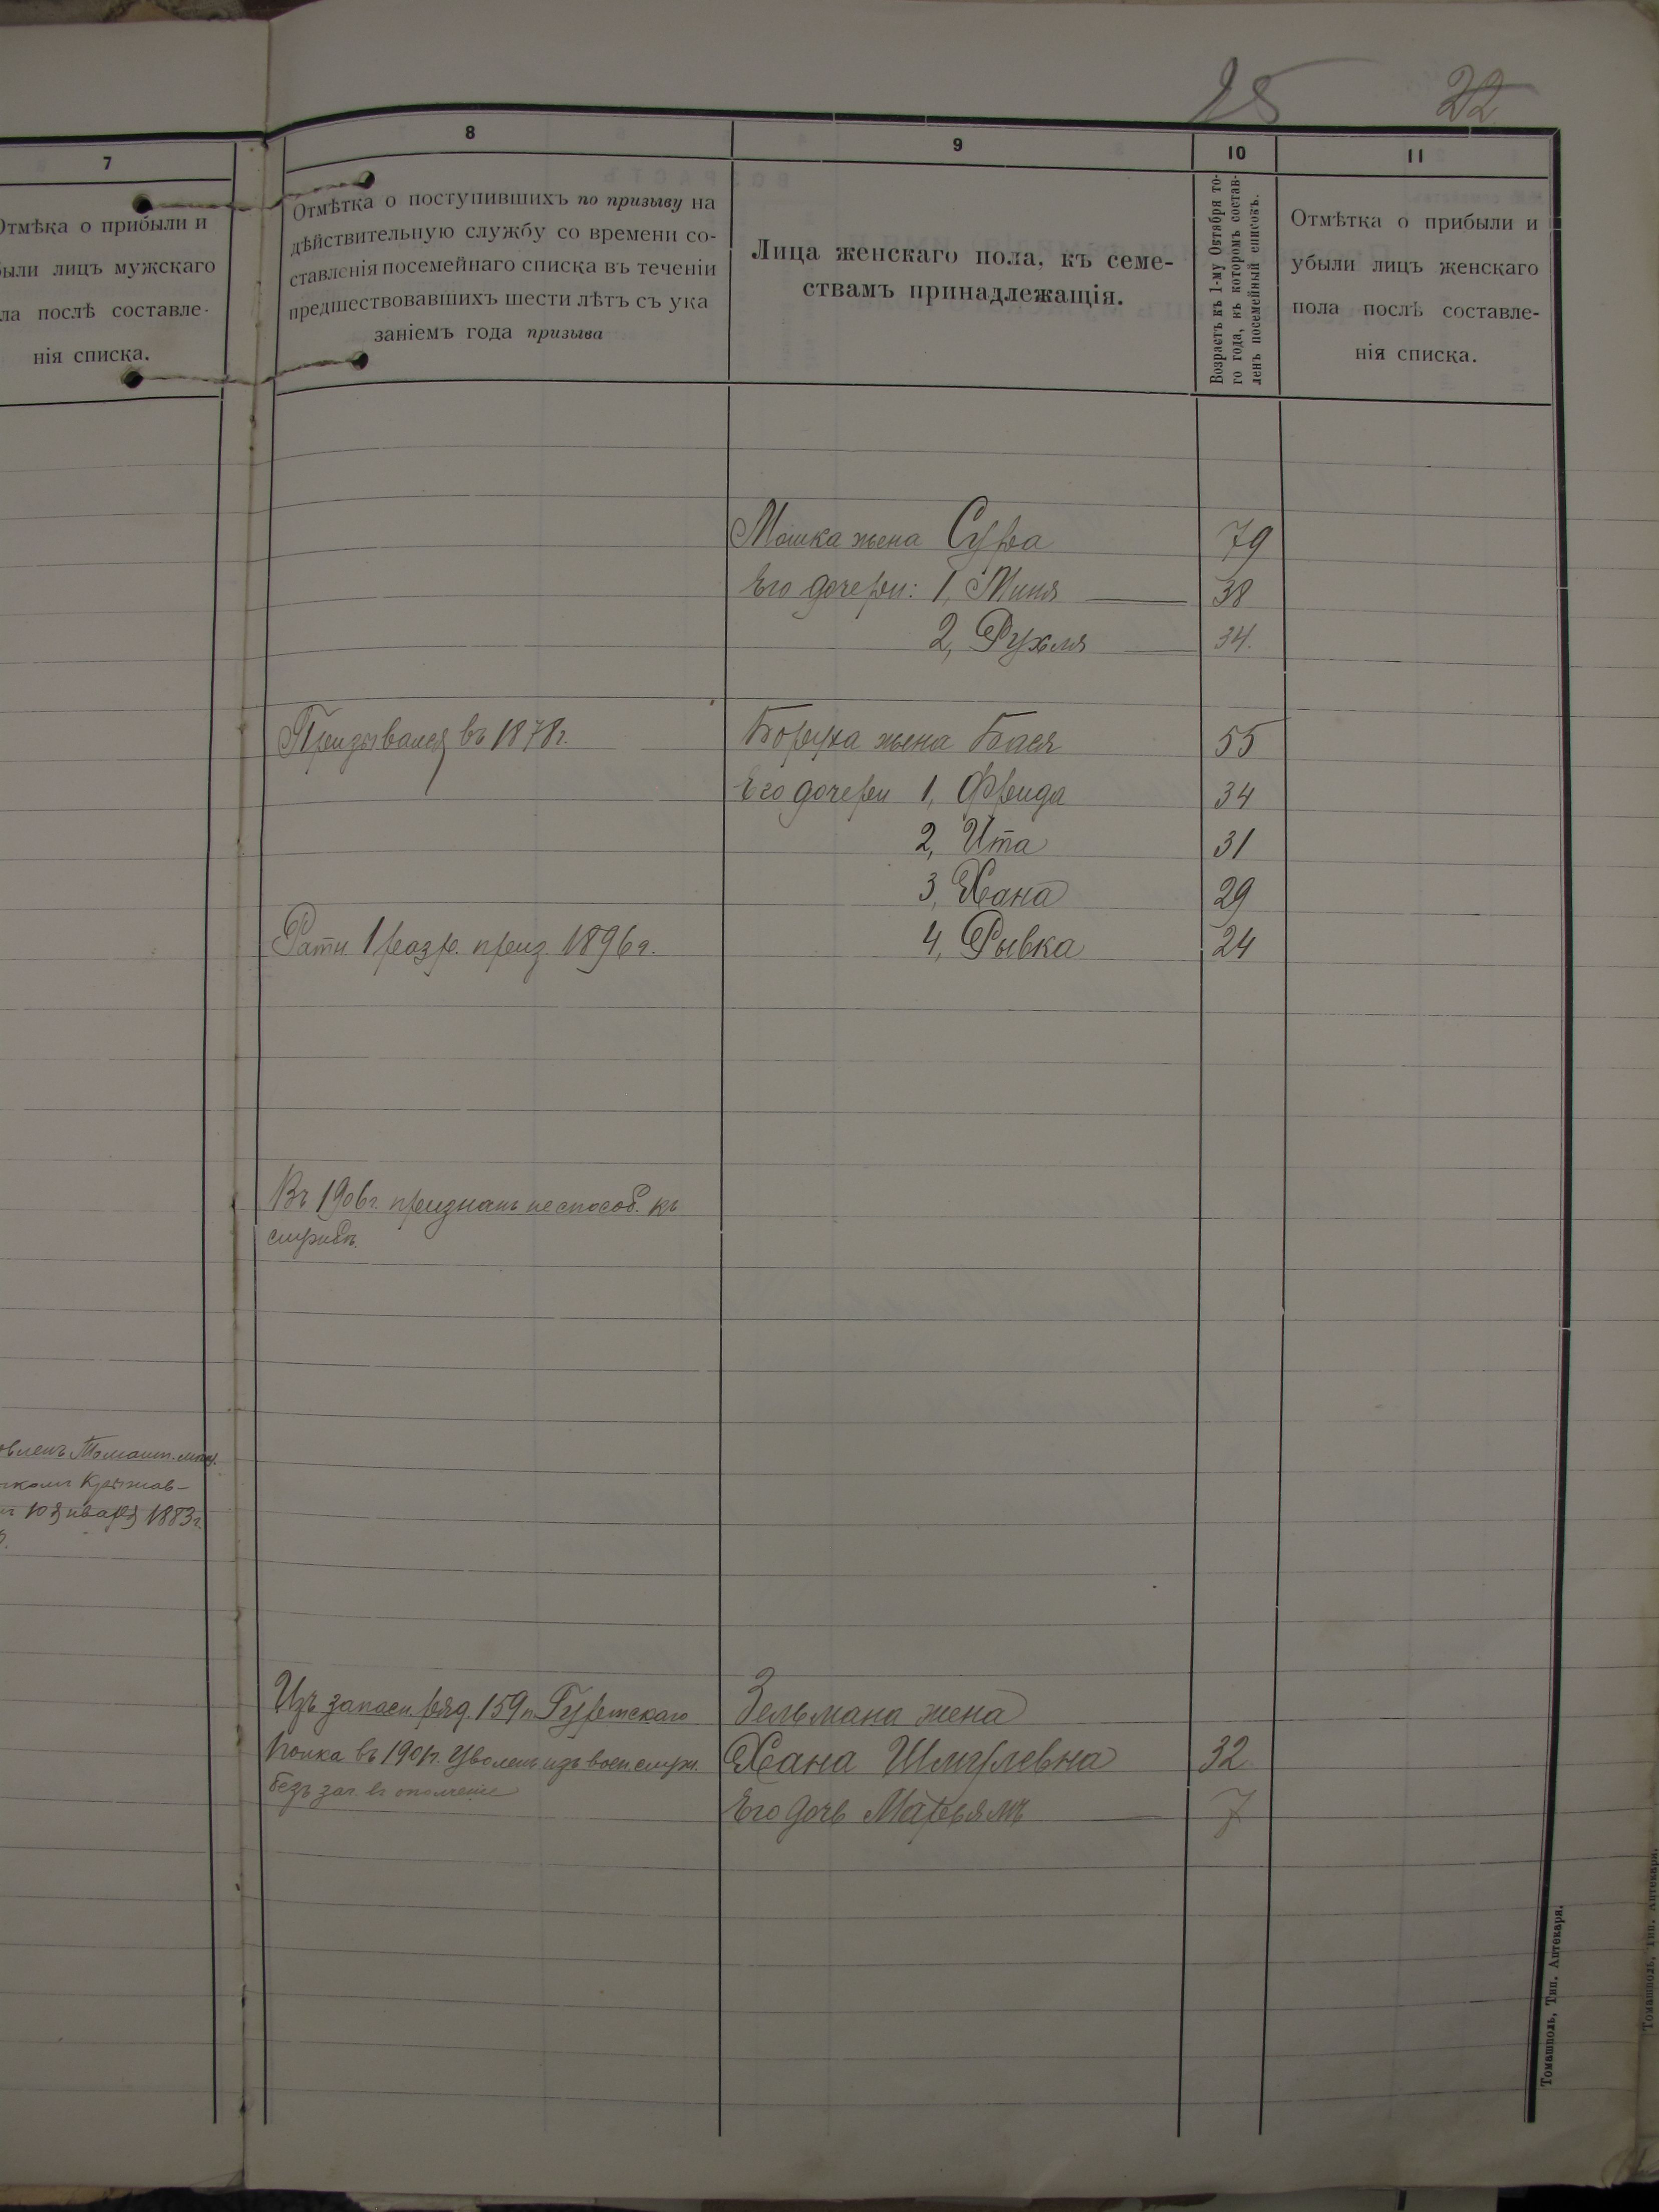 25 22
7
Отмѣка о прибыли и
были лицъ мужскаго
ла послѣ составле-
нія списка.
8
Отмѣтка о поступившихъ по призыву на
дѣйствительную службу со времени со-
ставленія посемейнаго списка въ теченіи
предшествовавшихъ шести лѣтъ съ ука
заніемъ года призыва
9
Лица женскаго пола, къ семе-
ствамъ принадлежащія.
10
Возрастъ къ 1-му Октября то-
го года, въ которомъ состав-
ленъ посемейный списокъ.
11
Отмѣтка о прибыли и
убыли лицъ женскаго
пола послѣ составле-
нія списка.
Мошка жена Сура 79
Его дочери: 1, Миня 38
2, Рухля 34.
Призывался въ 1878г. Боруха жена Бася 55
Его дочери 1, Фрида 34
2, Ита 31
3, Хана 29
Ратн 1 разр. приз. 1896г. 4, Рывка 24
Въ 1906г. признанъ неспособ. къ
службѣ.
10 января 1883г.
Изъ запасн. ряд. 159 п. Гурійскаго Зельмана жена
полка въ 1901г. Уволенъ изъ воен. служ. Хана Шмулевна 32
безъ зач. въ ополченіе
Его дочь Марьямъ 7
Томашполь, Тип. Аптекаря.
Томашполь, Тип. Аптекаря.